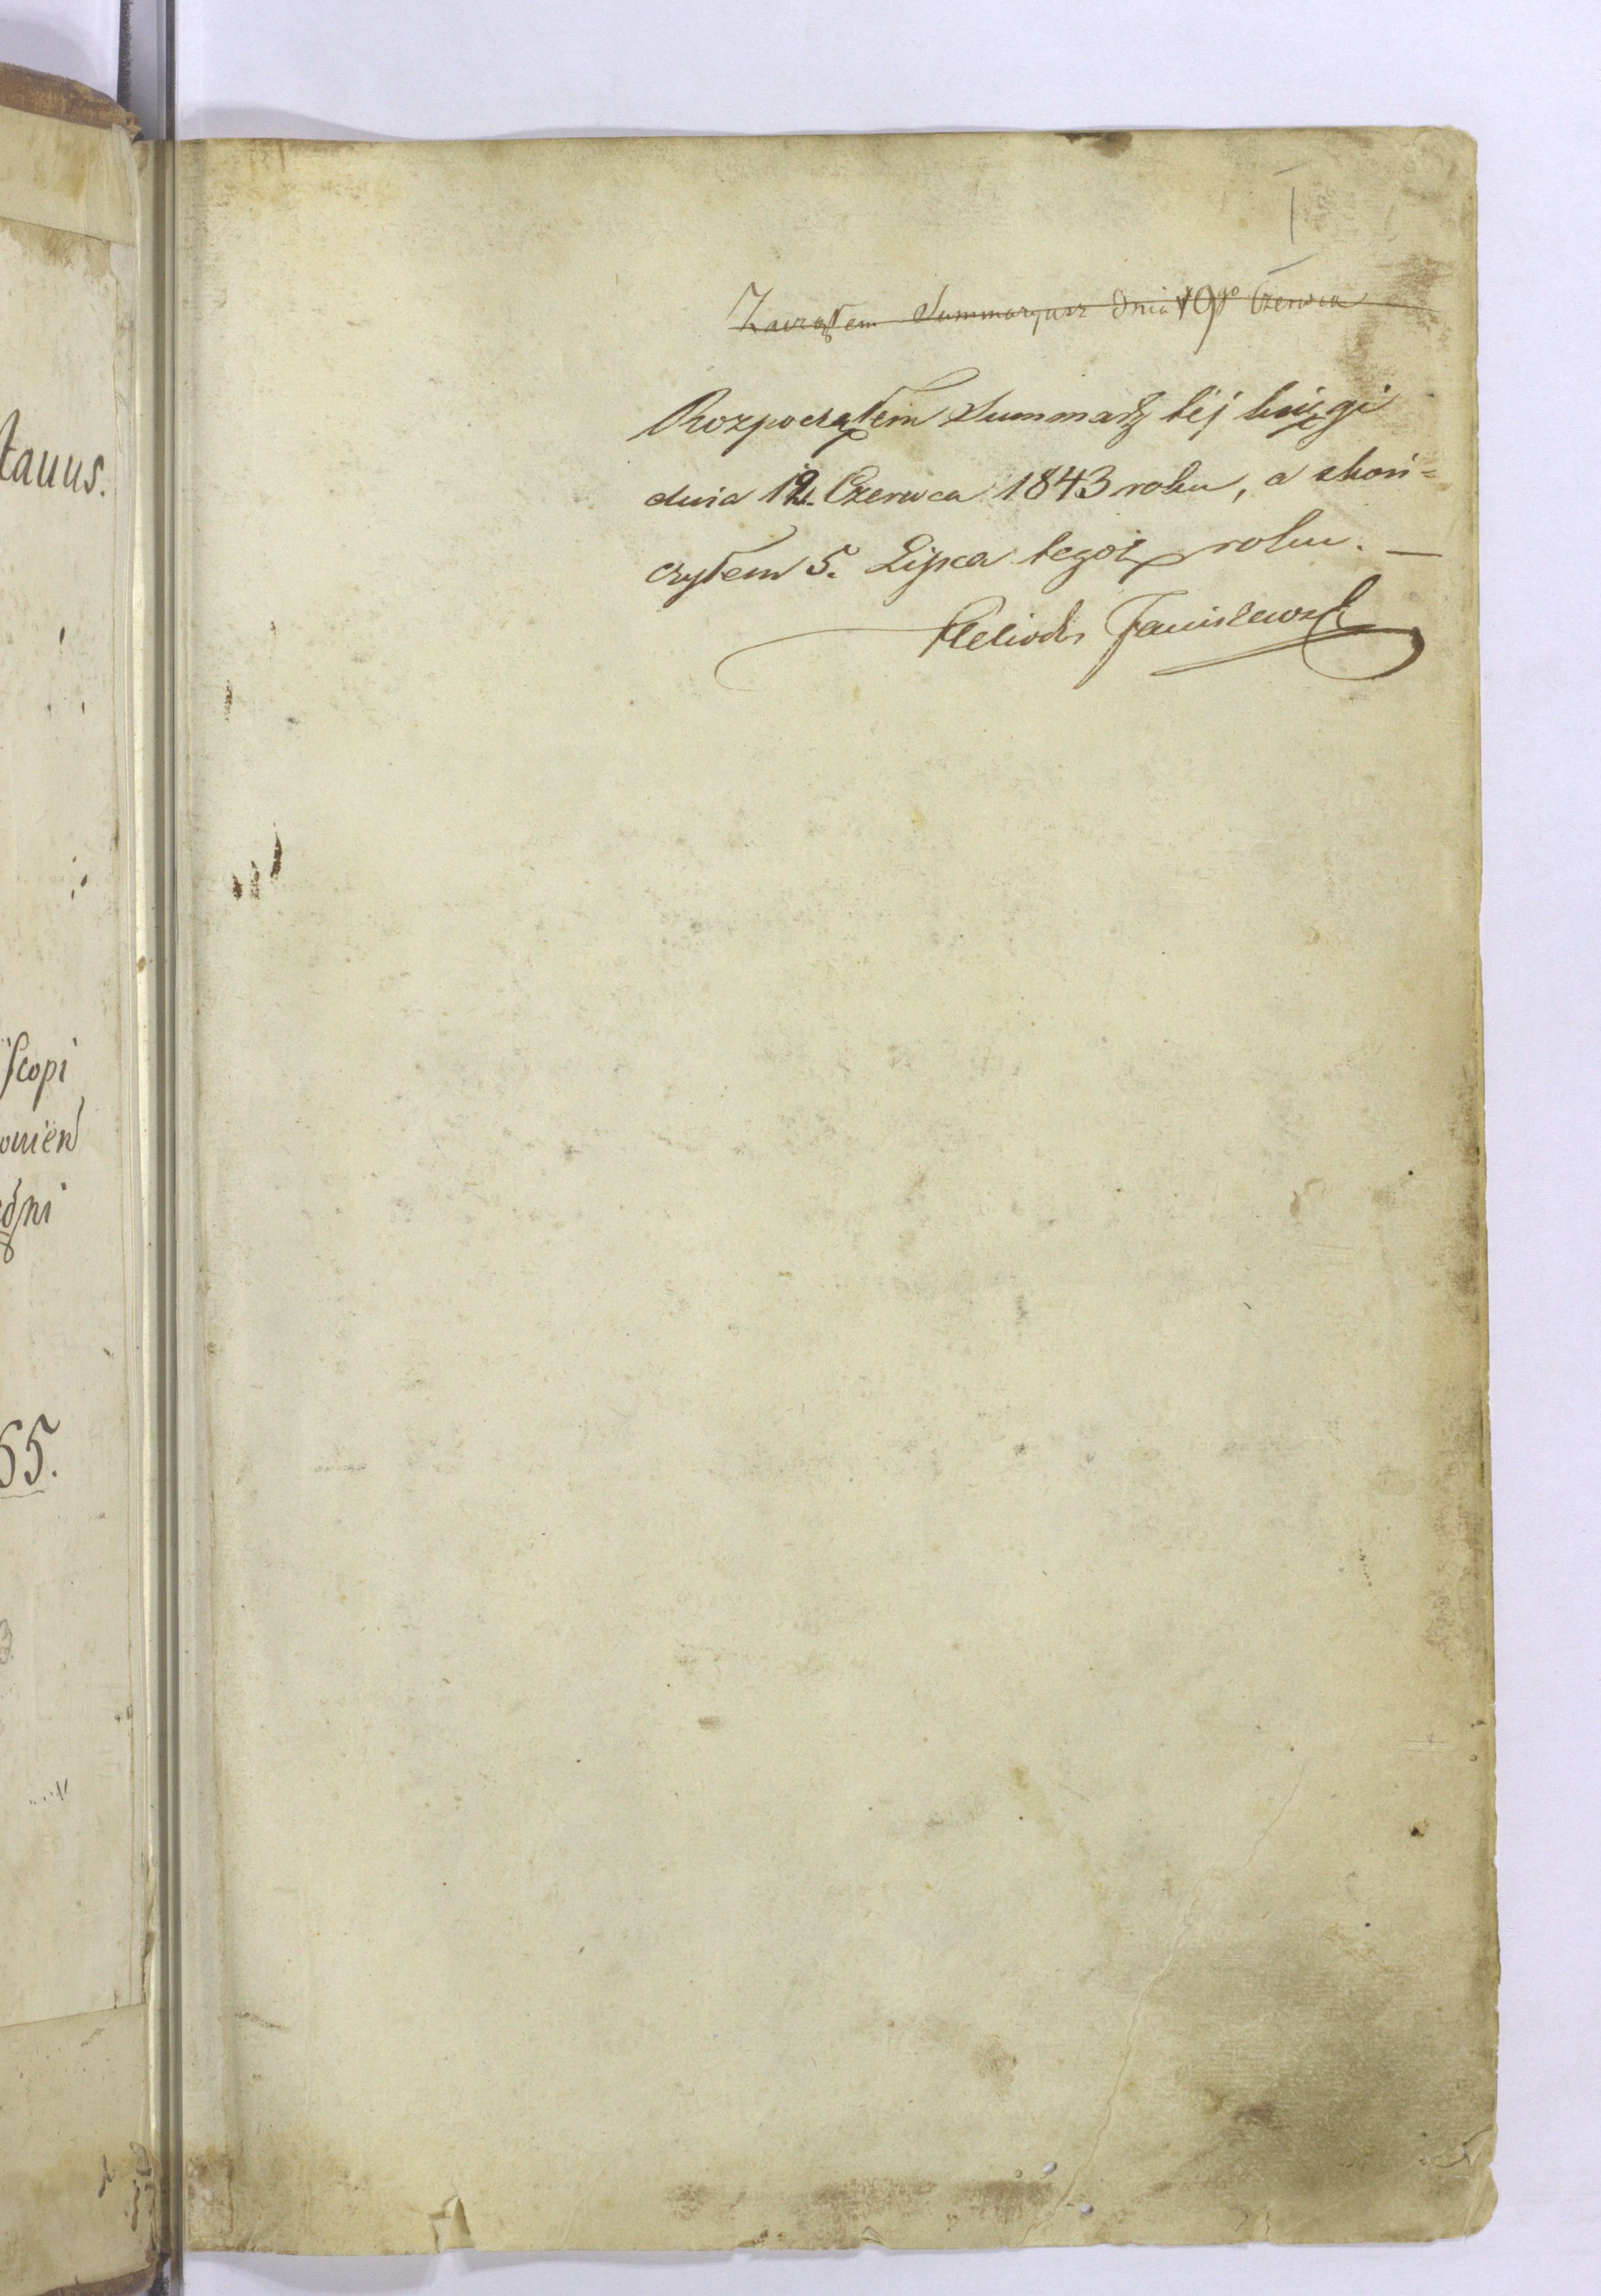 tauus.
scopi
I
Zacząłem Summaryusz dnia 19go Czerwca
Rozpocząłem Summarz téj księgi
dnia 12. Czerwca 1843 roku, a skoń=
czyłem 5. Lipca tegoż roku. —
Heliodor Janiszewski
55.